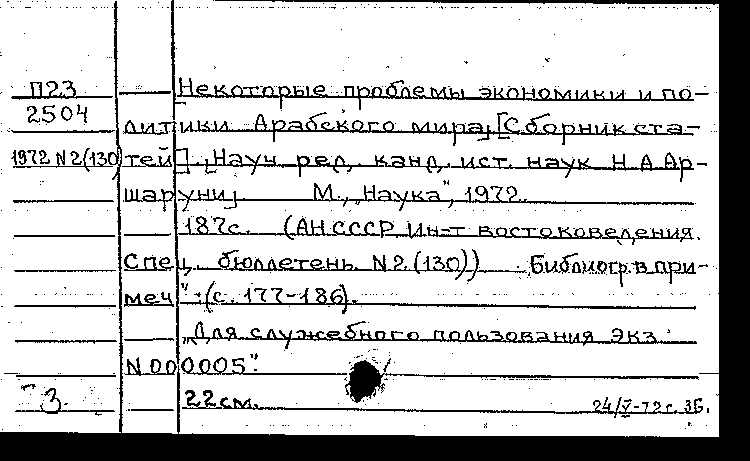 П23 Некоторые проблемы экономики и по-
2504 литики Арабского мира, [Сборник ста-
1972 N2(130) тей]. [Науч. ред. канд. ист. наук Н.А.Ар-
шаруни]. М., „Наука", 1972.
187с. (АН СССР. Ин-т востоковедения.
Спец. бюллетень. N2 (130)) Библиогр. в при-
меч": (с. 177-186).
„Для служебного пользования Экз.
N 000005".
3. 22см. 24/V-72г. ЗБ.